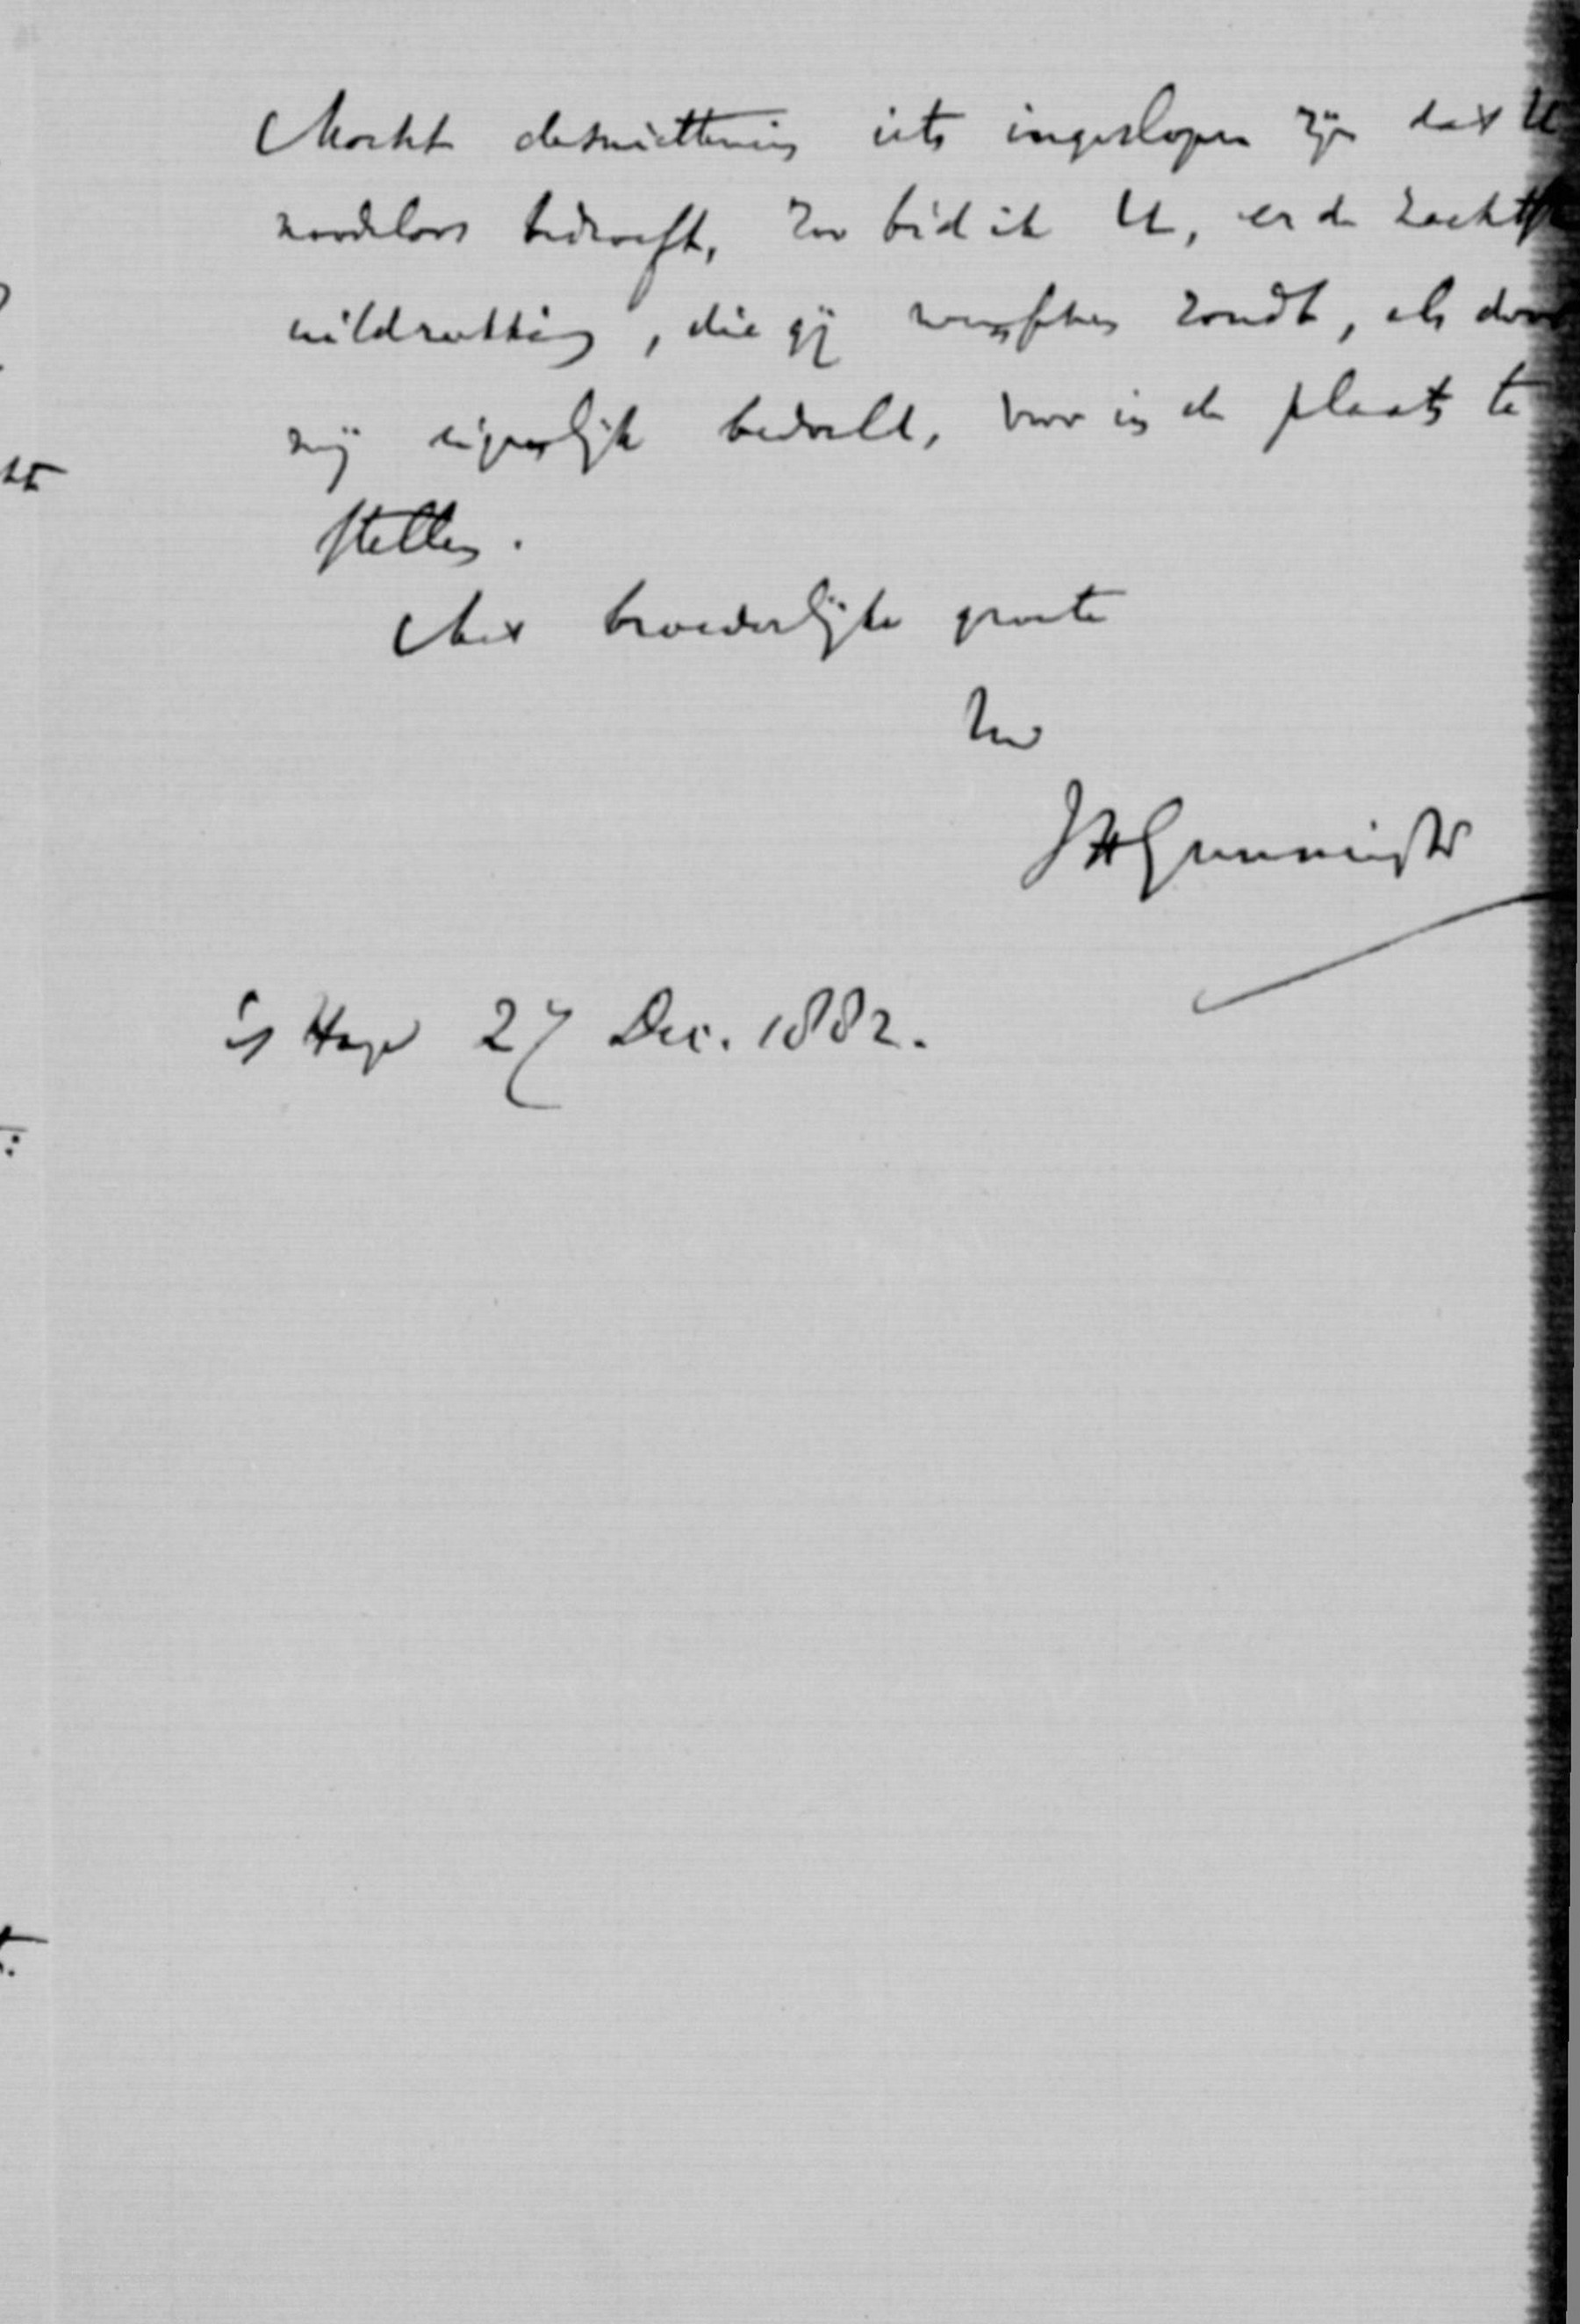 Mocht desniettemin iets ingeslopen zijn dat U
noodeloos bedroeft, zoo bid ik U, er de zachtste
uitdrukking, die gij wenschen zoudt, als door
mij eigenlijk bedoeld, voor in de plaats te
stellen.
Met broederlijke groete
Uw
JHGunningJr
's Hage 27 Dec. 1882.